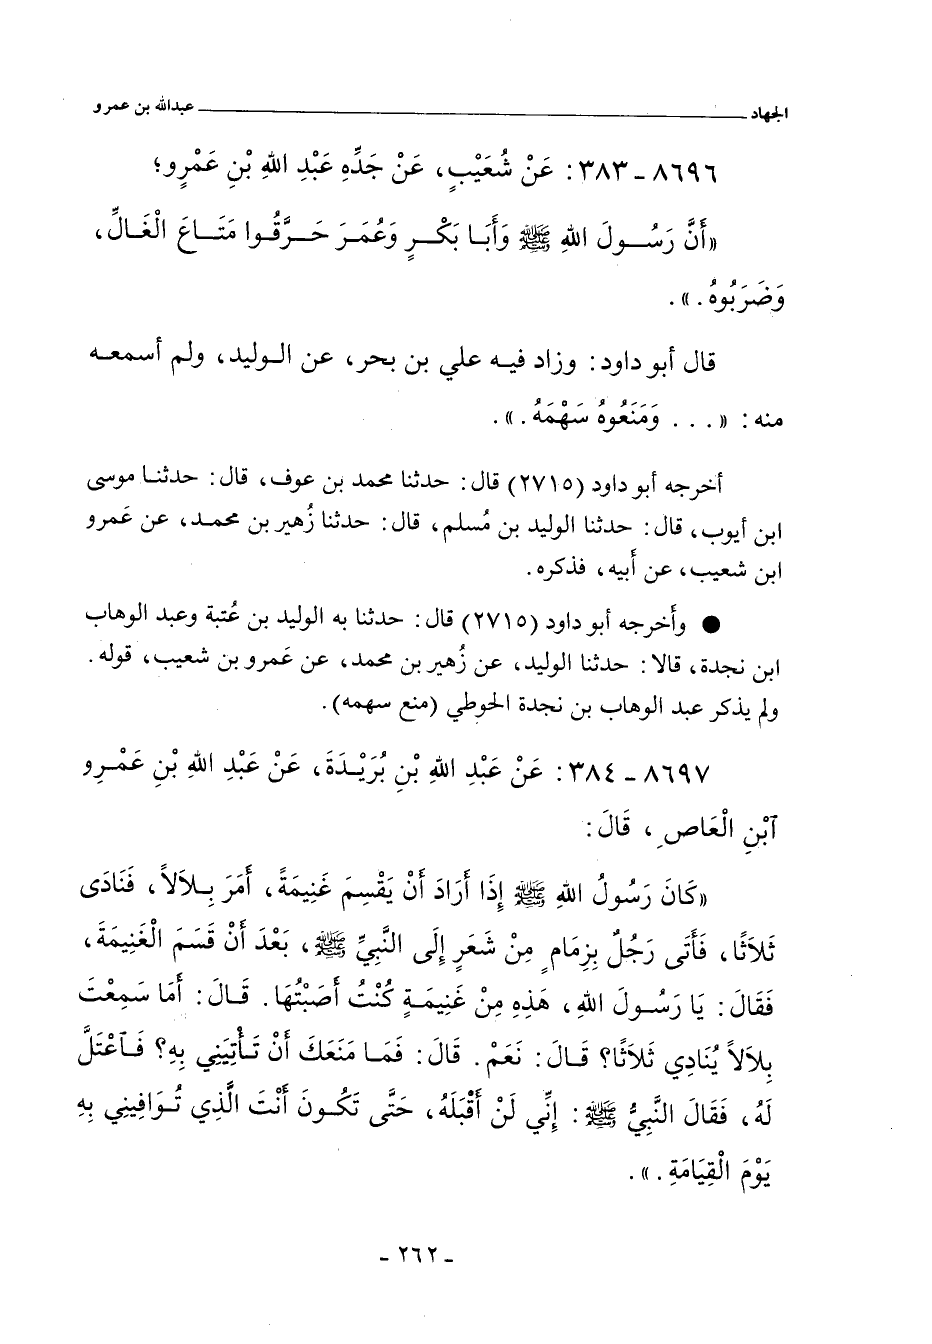 الجهاد ــــــ عبدالله بن عمرو
٨٦٩٦ - ٣٨٣: عَنْ شُعَيْبٍ، عَنْ جَدِّهِ عَبْدِ اللهِ بْنِ عَمْرٍو؛
«أَنَّ رَسُولَ اللهِ ﷺ وَأَبَا بَكْرٍ وَعُمَرَ حَرَّقُوا مَتَاعَ الْغَالِّ،
وَضَرَبُوهُ.».
قال أبو داود: وزاد فيه علي بن بحر، عن الوليد، ولم أسمعه
منه: «... وَمَنَعُوهُ سَهْمَهُ.».
أخرجه أبو داود (٢٧١٥) قال: حدثنا محمد بن عوف، قال: حدثنا موسى
ابن أيوب، قال: حدثنا الوليد بن مُسلم، قال: حدثنا زُهير بن محمد، عن عَمرو
ابن شعيب، عن أَبيه، فذكره.
● وأَخرجه أبو داود (٢٧١٥) قال: حدثنا به الوليد بن عُتبة وعبد الوهاب
ابن نجدة، قالا: حدثنا الوليد، عن زُهير بن محمد، عن عَمرو بن شعيب، قوله.
ولم يذكر عبد الوهاب بن نجدة الحوطي (منع سهمه).
٨٦٩٧ - ٣٨٤: عَنْ عَبْدِ اللهِ بْنِ بُرَيْدَةَ، عَنْ عَبْدِ اللهِ بْنِ عَمْرِو
ٱبْنِ الْعَاصِ، قَالَ:
«كَانَ رَسُولُ اللهِ ﷺ إِذَا أَرَادَ أَنْ يَقْسِمَ غَنِيمَةً، أَمَرَ بِلاَلاً، فَنَادَى
ثَلاَثًا، فَأَتَى رَجُلٌ بِزِمَامٍ مِنْ شَعَرٍ إِلَى النَّبِيِّ ﷺ، بَعْدَ أَنْ قَسَمَ الْغَنِيمَةَ،
فَقَالَ: يَا رَسُولَ اللهِ، هَذِهِ مِنْ غَنِيمَةٍ كُنْتُ أَصَبْتُهَا. قَالَ: أَمَا سَمِعْتَ
بِلاَلاً يُنَادِي ثَلاَثًا؟ قَالَ: نَعَمْ. قَالَ: فَمَا مَنَعَكَ أَنْ تَأْتِيَنِي بِهِ؟ فَٱعْتَلَّ
لَهُ، فَقَالَ النَّبِيُّ ﷺ: إِنِّي لَنْ أَقْبَلَهُ، حَتَّى تَكُونَ أَنْتَ الَّذِي تُوَافِينِي بِهِ
يَوْمَ الْقِيَامَةِ.».
- ٢٦٢ -